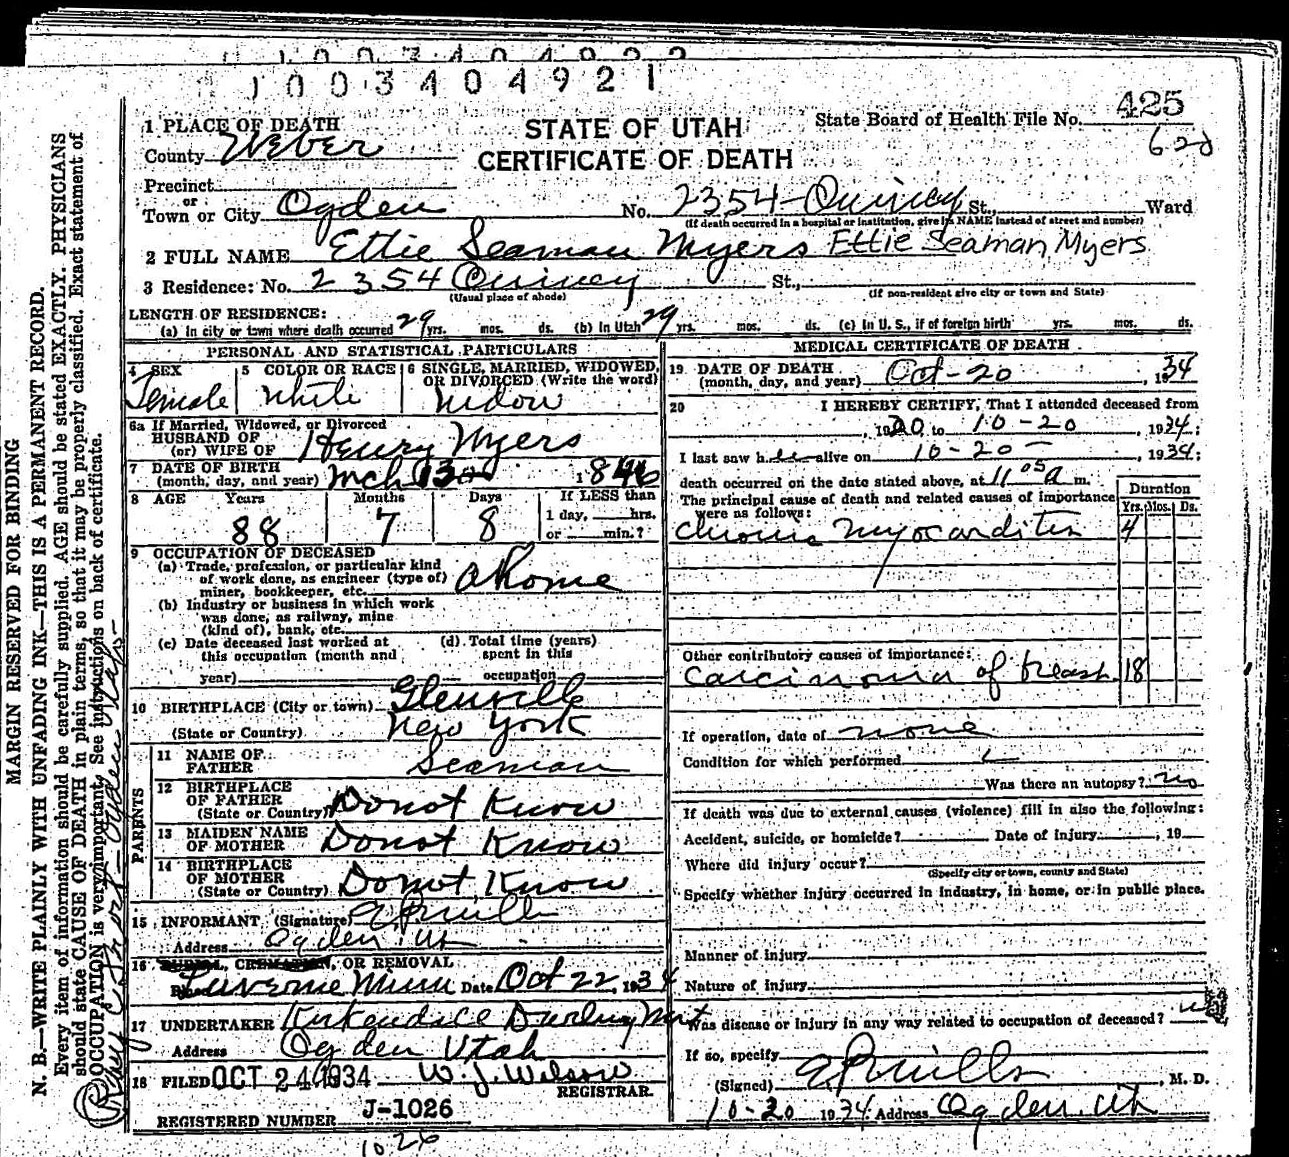 1003404922
1003404921
1 PLACE OF DEATH
County Weber
STATE OF UTAH
CERTIFICATE OF DEATH
State Board of Health File No. 425
62d
Precinct
or
Town or City Ogden No. 2354 Quincy St., Ward
(If death occurred in a hospital or institution, give its NAME instead of street and number)
2 FULL NAME Ettie Seaman Myers Ettie Seaman Myers
3 Residence: No. 2354 Quincy St.,
(Usual place of abode) (If non-resident give city or town and State)
LENGTH OF RESIDENCE:
(a) In city or town where death occurred 29 yrs. mos. ds. (b) In Utah 29 yrs. mos. ds. (c) In U. S., if of foreign birth yrs. mos. ds.
PERSONAL AND STATISTICAL PARTICULARS
4 SEX Female
5 COLOR OR RACE White
6 SINGLE, MARRIED, WIDOWED, OR DIVORCED (Write the word) Widow
6a If Married, Widowed, or Divorced
HUSBAND OF
(or) WIFE OF Henry Myers
7 DATE OF BIRTH
(month, day, and year) Mch 1846
8 AGE Years Months Days If LESS than
88 7 8 1 day, hrs.
or min.?
9 OCCUPATION OF DECEASED
(a) Trade, profession, or particular kind
of work done, as engineer (type of)
miner, bookkeeper, etc. at Home
(b) Industry or business in which work
was done, as railway, mine
(kind of), bank, etc.
(c) Date deceased last worked at
this occupation (month and
year)
(d) Total time (years)
spent in this
occupation
10 BIRTHPLACE (City or town) Glenville
(State or Country) New York
PARENTS
11 NAME OF
FATHER Seaman
12 BIRTHPLACE
OF FATHER
(State or Country) Do not Know
13 MAIDEN NAME
OF MOTHER Do not Know
14 BIRTHPLACE
OF MOTHER
(State or Country) Do not Know
15 INFORMANT (Signature) E P Mills
Address Ogden Ut
16 BURIAL, CREMATION, OR REMOVAL
Place Luverne Minn Date Oct 22, 1934
17 UNDERTAKER Kirkendall Darling Mort
Address Ogden Utah
18 FILED OCT 24 1934 W. J. Wilson
REGISTRAR.
REGISTERED NUMBER J-1026
1026
MEDICAL CERTIFICATE OF DEATH
19 DATE OF DEATH
(month, day, and year) Oct-20, 1934
20 I HEREBY CERTIFY, That I attended deceased from
, 1920, to 10-20, 1934;
I last saw her alive on 10-20, 1934;
death occurred on the date stated above, at 11 05 a m.
The principal cause of death and related causes of importance
were as follows:
Duration
Yrs. Mos. Ds.
Chronic Myocarditis 4
Other contributory causes of importance:
Carcinoma of breast 18
If operation, date of none
Condition for which performed
Was there an autopsy? no
If death was due to external causes (violence) fill in also the following:
Accident, suicide, or homicide? Date of injury , 19
Where did injury occur?
(Specify city or town, county and State)
Specify whether injury occurred in industry, in home, or in public place.
Manner of injury
Nature of injury
Was disease or injury in any way related to occupation of deceased?
If so, specify
(Signed) E P Mills, M. D.
10-20 1934 Address Ogden Ut
MARGIN RESERVED FOR BINDING
N. B.—WRITE PLAINLY WITH UNFADING INK—THIS IS A PERMANENT RECORD.
Every item of information should be carefully supplied. AGE should be stated EXACTLY. PHYSICIANS
should state CAUSE OF DEATH in plain terms, so that it may be properly classified. Exact statement of
OCCUPATION is very important. See instructions on back of certificate.